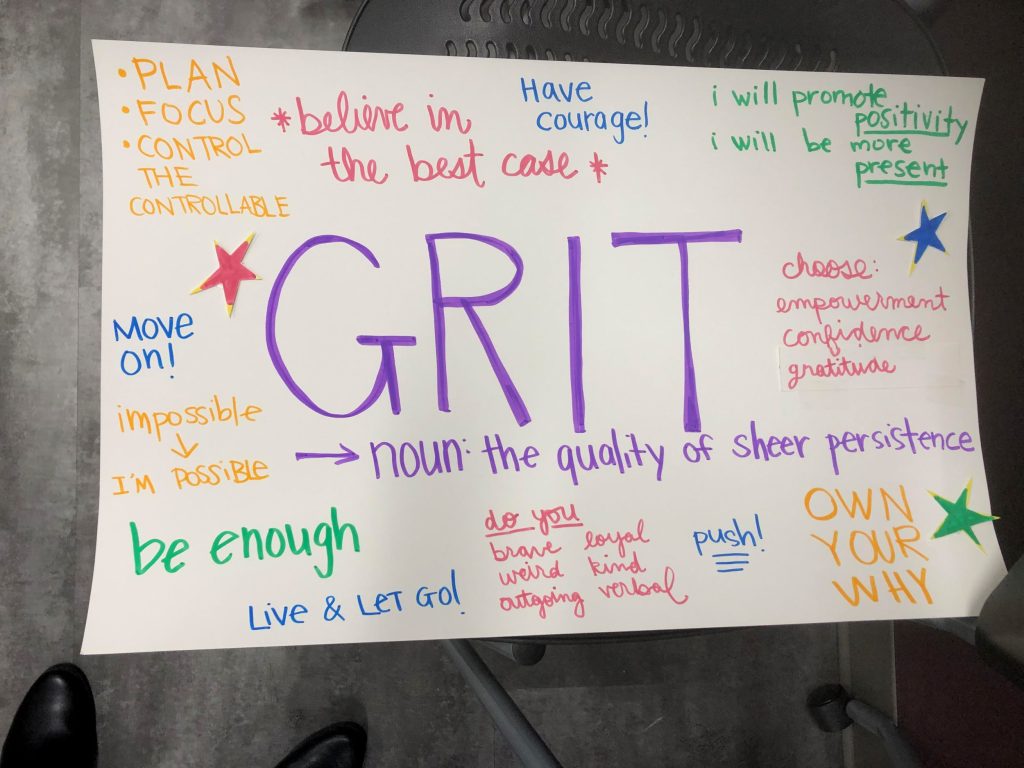 • PLAN
• FOCUS
• CONTROL
THE
CONTROLLABLE
*believe in
the best case*
Have
courage!
i will promote
positivity
i will be more
present
GRIT
choose:
empowerment
confidence
gratitude
Move
on!
impossible
↓
I'M POSSIBLE
→ noun: the quality of sheer persistence
be enough
Live & Let Go!
do you
brave loyal
weird kind
outgoing verbal
push!
OWN
YOUR
WHY